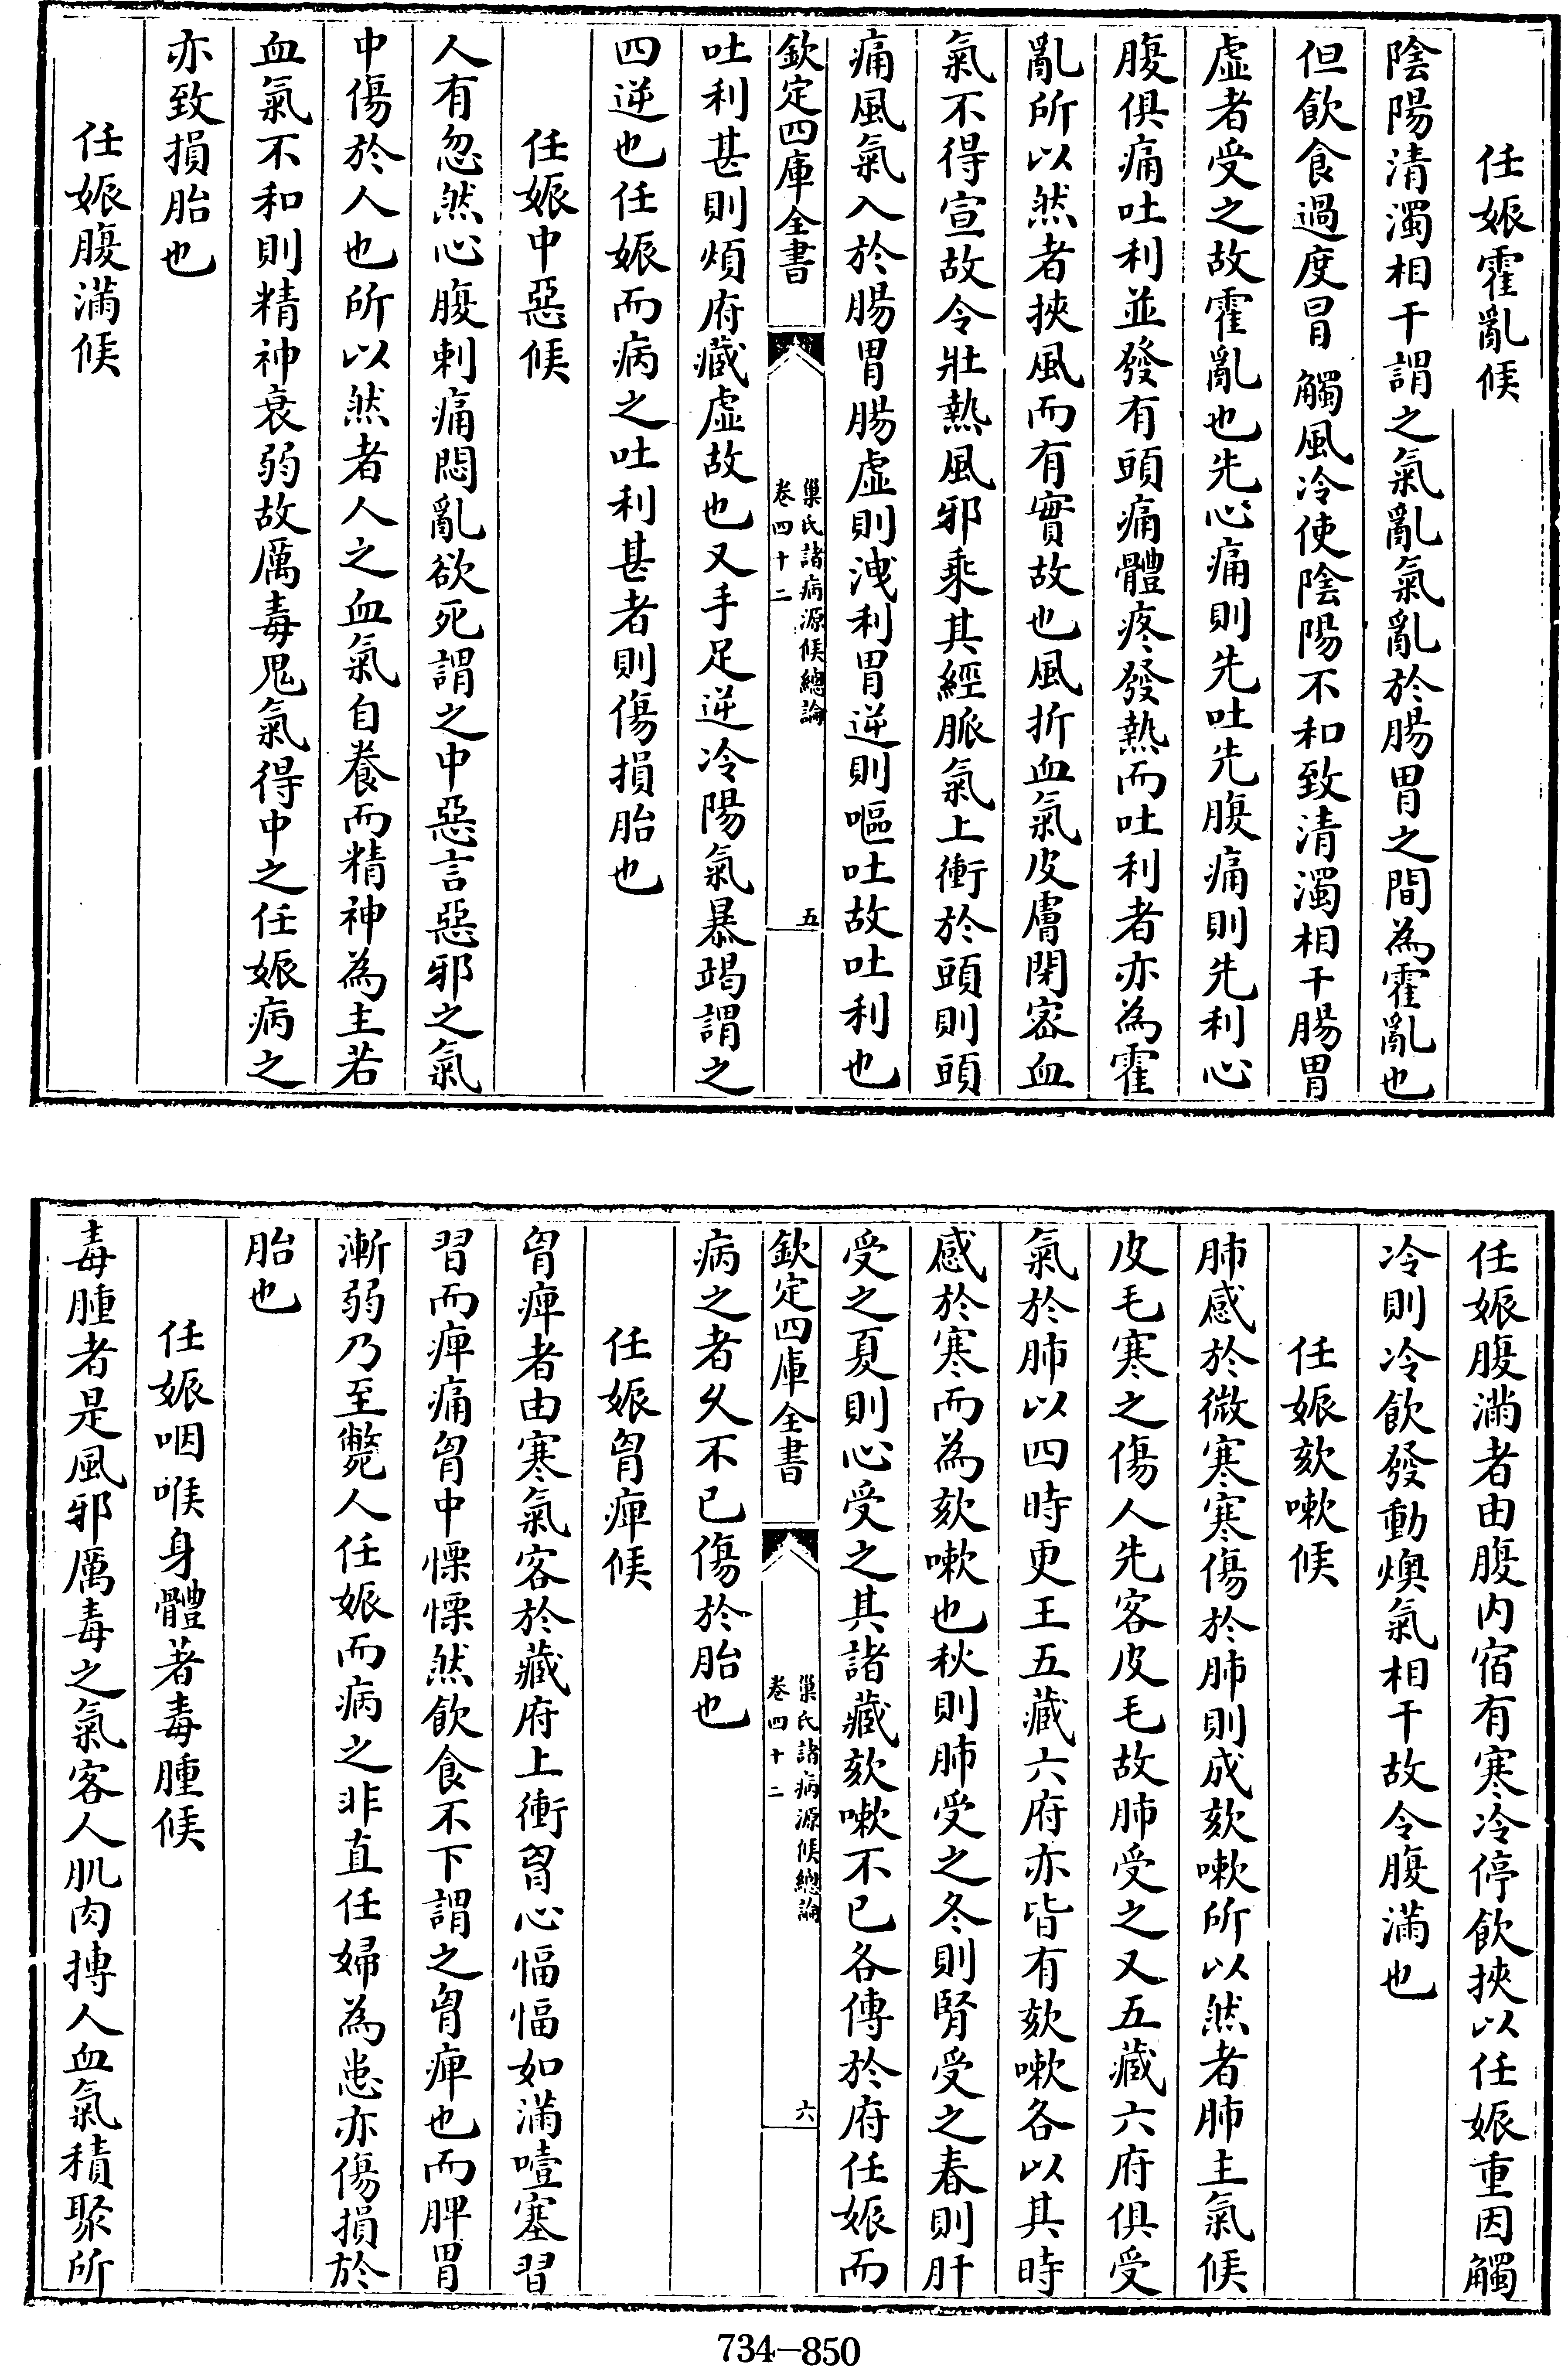 任娠霍亂候
陰陽清濁相干謂之氣亂氣亂於腸胃之間為霍亂也
但飲食過度冒觸風冷使陰陽不和致清濁相干腸胃
虛者受之故霍亂也先心痛則先吐先腹痛則先利心
腹俱痛吐利並發有頭痛體疼發熱而吐利者亦為霍
亂所以然者挾風而有實故也風折血氣皮膚閉密血
氣不得宣故令壯熱風邪乘其經脈氣上衝於頭則頭
痛風氣入於腸胃腸虛則洩利胃逆則嘔吐故吐利也
欽定四庫全書
巢氏諸病源候總論
卷四十二
五
吐利甚則煩府藏虛故也又手足逆冷陽氣暴竭謂之
四逆也任娠而病之吐利甚者則傷損胎也
任娠中惡候
人有忽然心腹刺痛悶亂欲死謂之中惡言惡邪之氣
中傷於人也所以然者人之血氣自養而精神為主若
血氣不和則精神衰弱故厲毒鬼氣得中之任娠病之
亦致損胎也
任娠腹滿候
任娠腹滿者由腹内宿有寒冷停飲挾以任娠重因觸
冷則冷飲發動燠氣相干故令腹滿也
任娠欬嗽候
肺感於微寒寒傷於肺則成欬嗽所以然者肺主氣候
皮毛寒之傷人先客皮毛故肺受之又五藏六府俱受
氣於肺以四時更王五藏六府亦皆有欬嗽各以其時
感於寒而為欬嗽也秋則肺受之冬則腎受之春則肝
受之夏則心受之其諸藏欬嗽不已各傳於府任娠而
欽定四庫全書
巢氏諸病源候總論
卷四十二
六
病之者久不已傷於胎也
任娠胷痺候
胷痺者由寒氣客於藏府上衝胷心愊愊如滿噎塞習
習而痺痛胷中慄慄然飲食不下謂之胷痺也而脾胃
漸弱乃至斃人任娠而病之非直任婦為患亦傷損於
胎也
任娠咽喉身體著毒腫候
毒腫者是風邪厲毒之氣客人肌肉搏人血氣積聚所
734—850